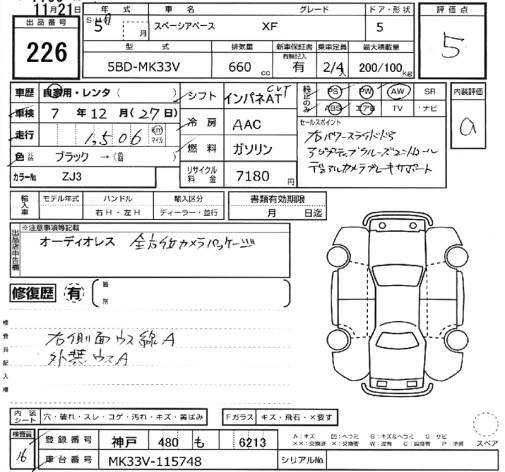 11月21日
出品番号
226
年式 車名 グレード ドア・形状
月 スペーシアベース XF 5
型式 排気量 新車保証書 有無記入 乗車定員 最大積載量
5BD-MK33V 660 cc 有 2/4人 200/100kg
評価点
5
車歴 自家用・レンタ( )
車検 7年 12月(27日)
走行 1,506 km マイル
色 ブラック →( )
カラーNo ZJ3
シフト インパネAT CVT
冷房 AAC
燃料 ガソリン
リサイクル料金 7180円
純正のみ PS PW AW SR
ABS エアB TV ・ナビ
セールスポイント
右パワースライドドア
アダプティブクルーズコントロール
デュアルカメラブレーキサポート
内装評価
a
輸入車 モデル年式 ハンドル 輸入区分
右H・左H ディーラー・並行
書類有効期限
月 日迄
出品店申告欄
※注意事項等記載
オーディオレス 全方位カメラパッケージ
修復歴 有
箇所
検査員記入欄
右側面ウス線A
外装ウスA
内装シート 穴・破れ・スレ・コゲ・汚れ・キズ・黄ばみ
Fガラス キズ・飛石・×要す
検査員
16
登録番号 神戸 480 も 6213
車台番号 MK33V-115748
シリアルNo.
A:キズ
スペア